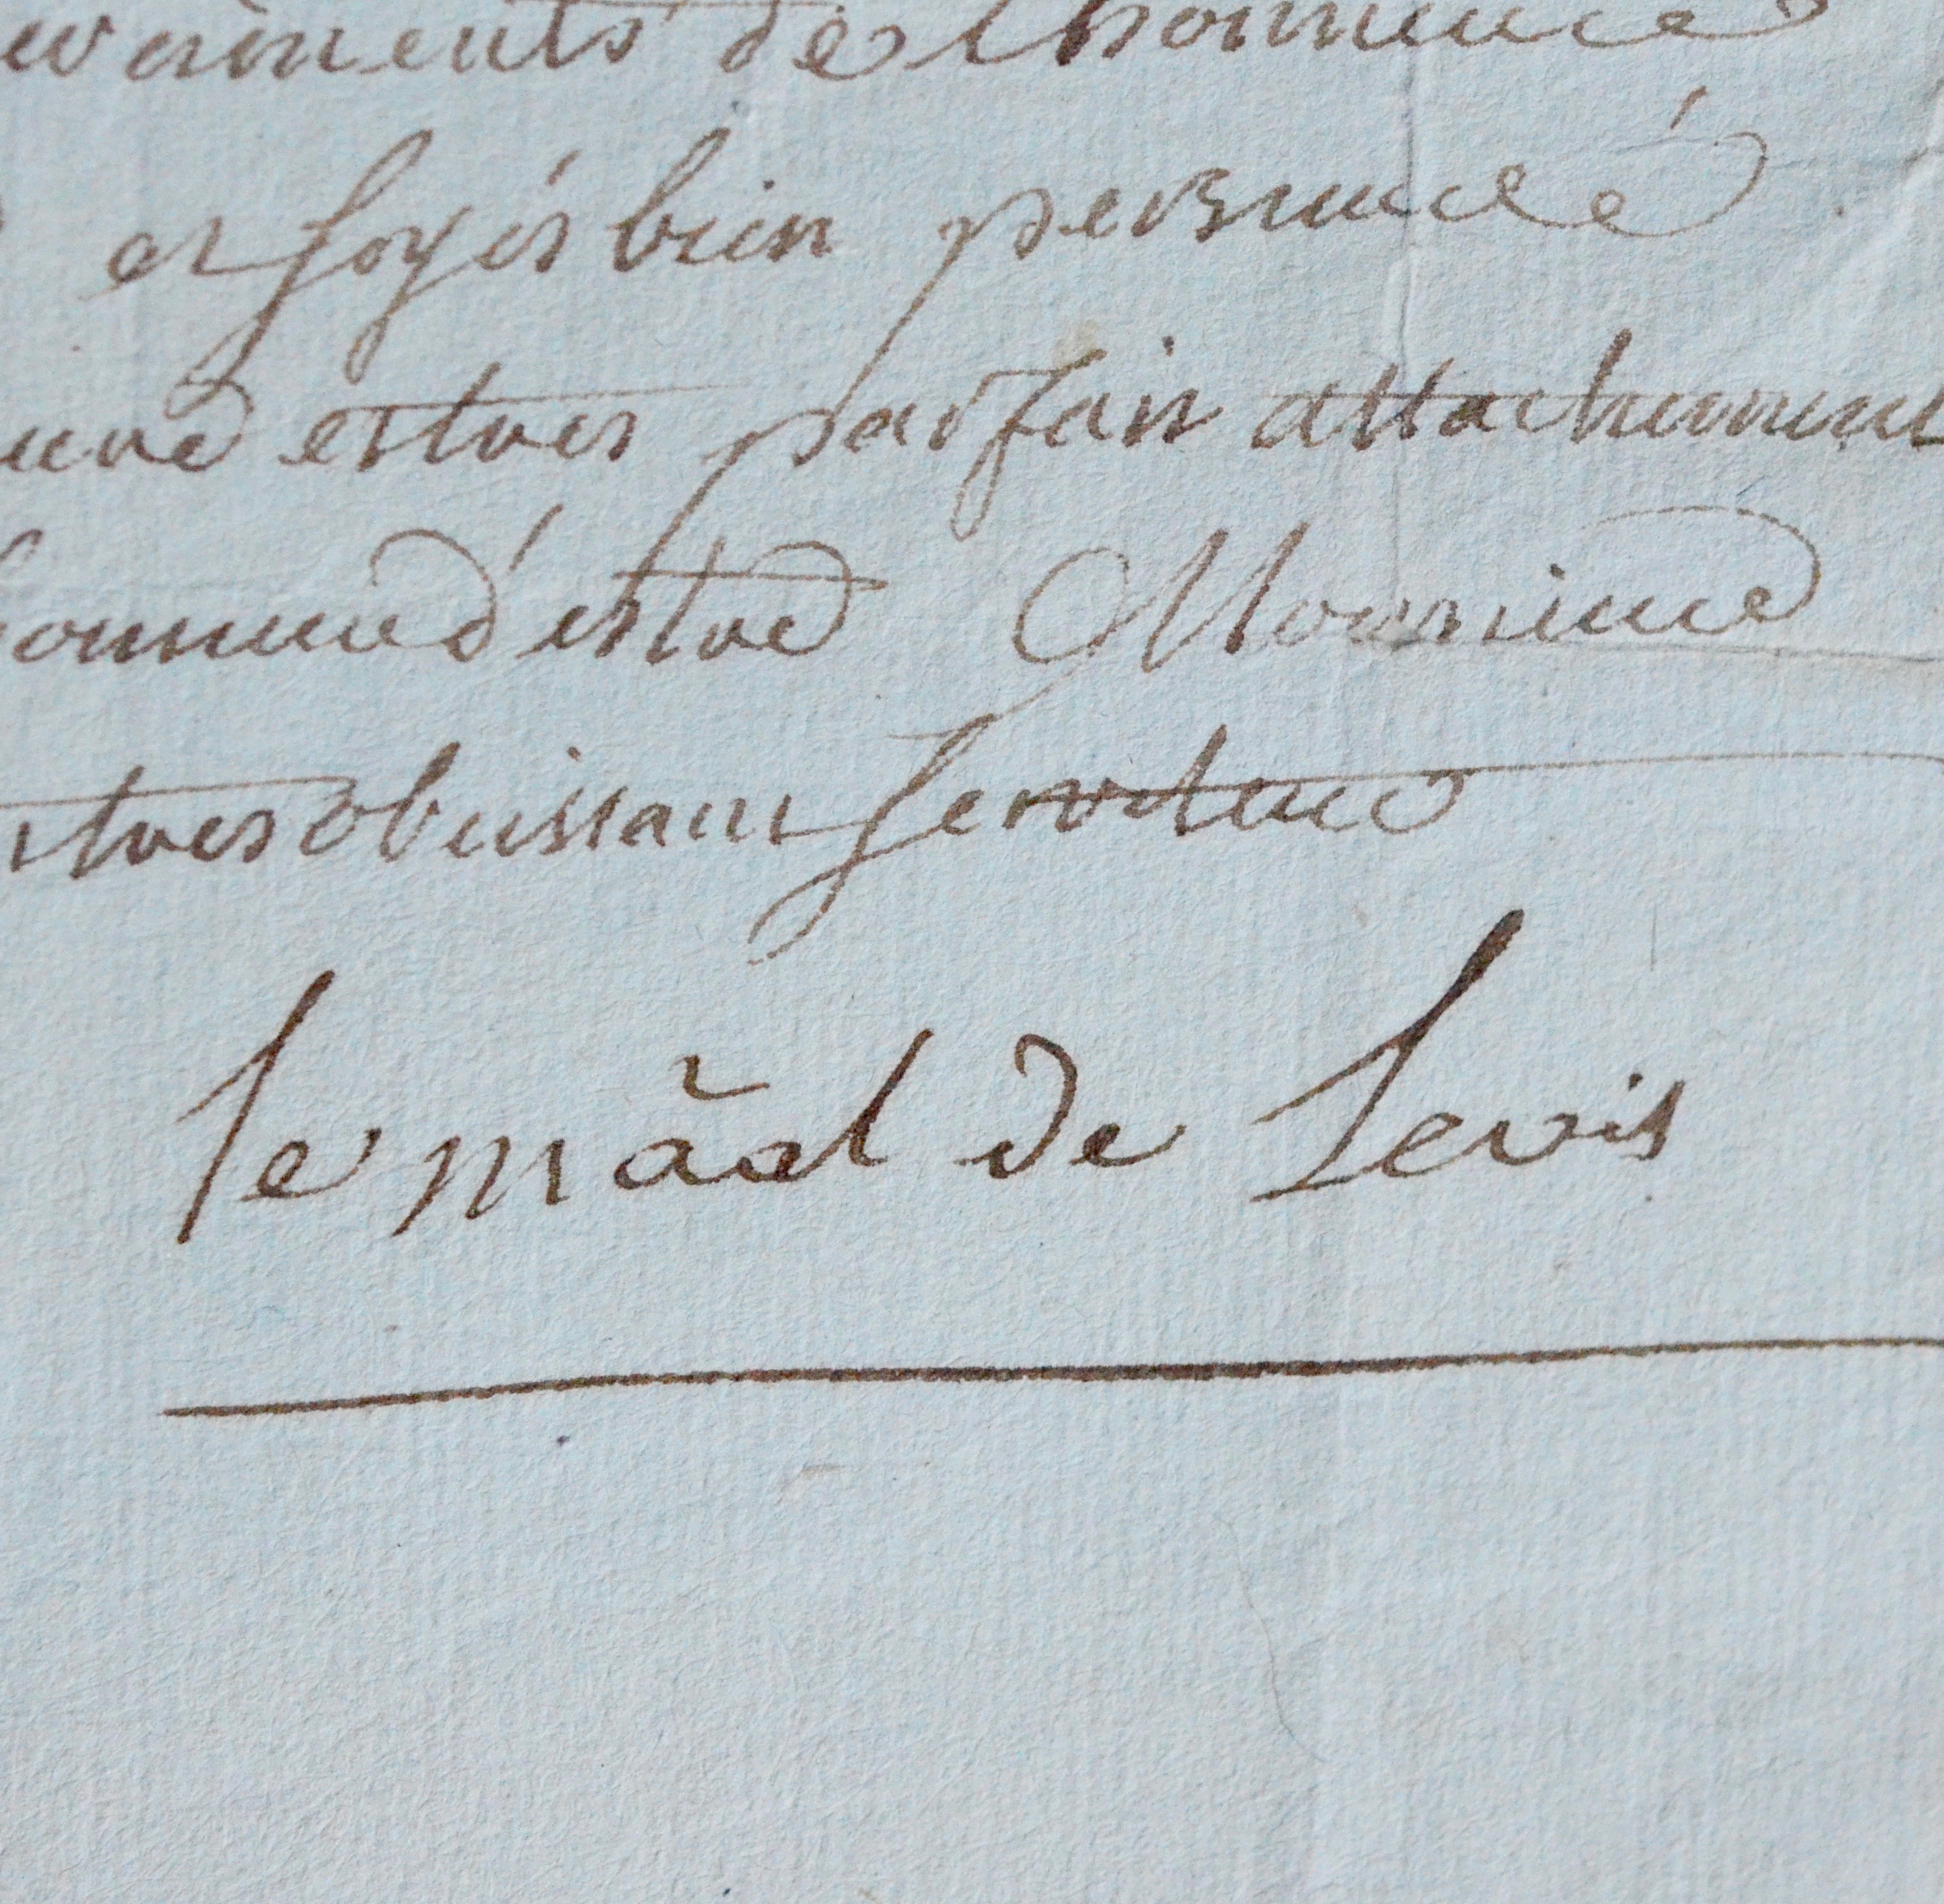 de l'honneur
et soyés bien persuadé
et tres parfait attachement
d'estre Monsieur
tres obeissant serviteur
le māal de Levis